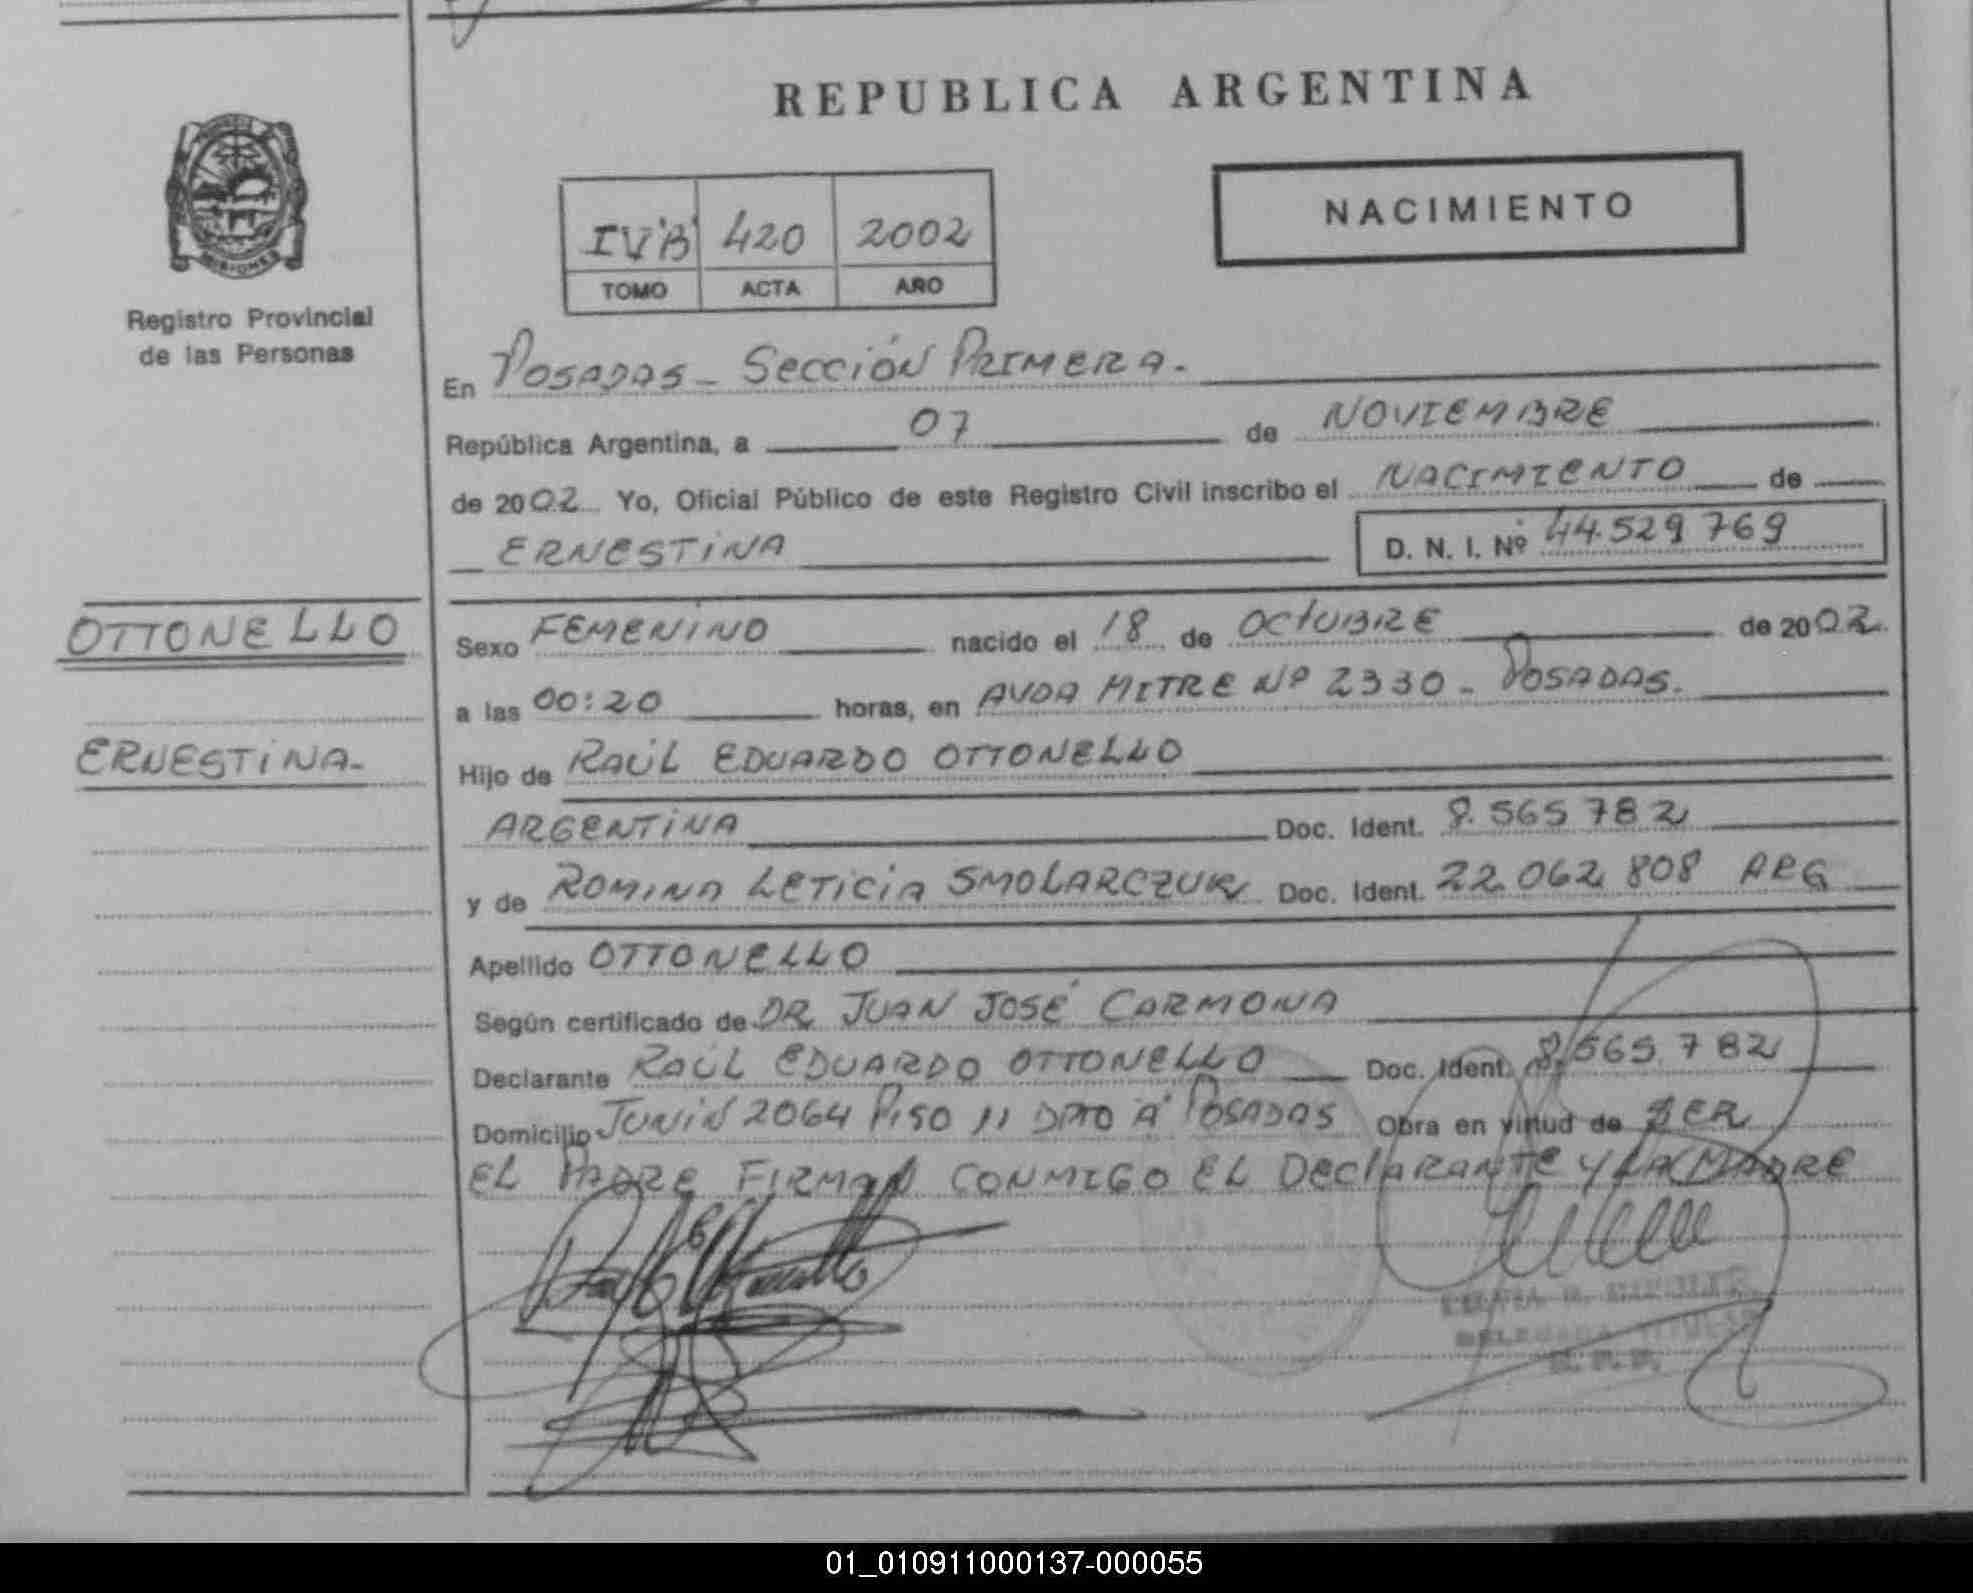 REPUBLICA ARGENTINA
MISIONES
Registro Provincial
de las Personas
IV'B' 420 2002
TOMO ACTA AÑO
NACIMIENTO
En POSADAS - SECCIÓN PRIMERA.
República Argentina, a 07 de NOVIEMBRE
de 2002 Yo, Oficial Público de este Registro Civil inscribo el NACIMIENTO de
ERNESTINA D. N. I. Nº 44.529 769
OTTONELLO
ERNESTINA-
Sexo FEMENINO nacido el 18 de OCTUBRE de 2002
a las 00:20 horas, en AVDA MITRE Nº 2330 - POSADAS.
Hijo de RAÚL EDUARDO OTTONELLO
ARGENTINA Doc. Ident. 8.565 782
y de ROMINA LETICIA SMOLARCZUK Doc. Ident. 22.062 808 ARG
Apellido OTTONELLO
Según certificado de DR JUAN JOSÉ CARMONA
Declarante RAÚL EDUARDO OTTONELLO Doc. Ident. 8.565.782
Domicilio JUNIN 2064 PISO 11 DPTO "A" POSADAS Obra en virtud de SER
EL PADRE FIRMAN CONMIGO EL DECLARANTE Y LA MADRE
DELEGADA TITULAR
R. P. P.
01_010911000137-000055